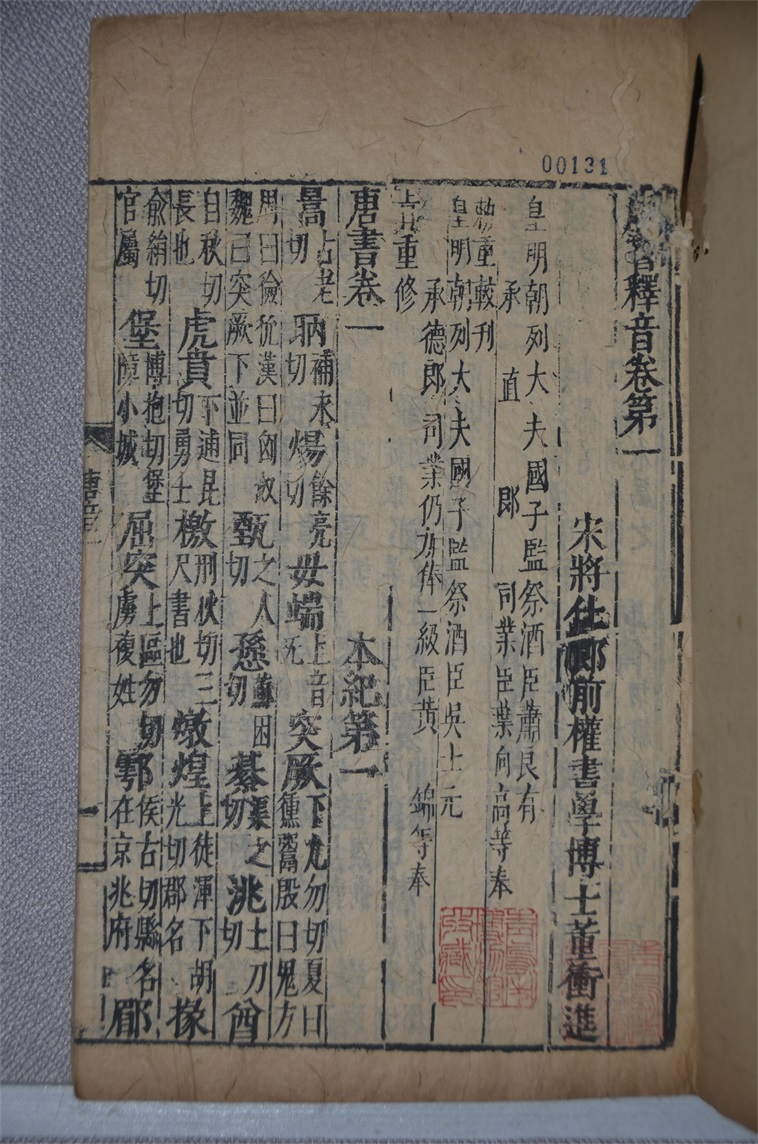 00131
唐書釋音卷第一
宋將仕郎前權書學博士董衝進
皇明朝列大夫國子監祭酒臣蕭良有
承直郎司業臣葉向高等奉
勅重較刊
皇明朝列大夫國子監祭酒臣吳士元
承德郎司業仍加俸一級臣黃錦等奉
旨重修
唐書卷一 本紀第一
暠古老切 聃補末切 煬餘亮切 毋端上音无 突厥下九勿切夏曰獯鬻殷曰鬼方
周曰儉狁漢曰匈奴魏曰突厥下並同 甄之人切 愻蘇困切 綦渠之切 洮土刀切 酋
自秋切長也 虎賁下逋昆切勇士 檄刑狄切三尺書也 燉煌上徒渾下胡光切郡名 掾
俞絹切官屬 堡博抱切堡障小城 屈突上區勿切虜複姓 鄠侯古切縣名在京兆府 郿
唐音一
一